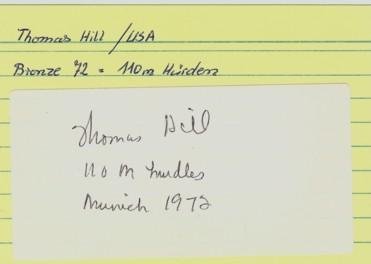 Thomas Hill / USA
Bronze 72 = 110m Hürden
Thomas Hill
110 M hurdles
Munich 1972